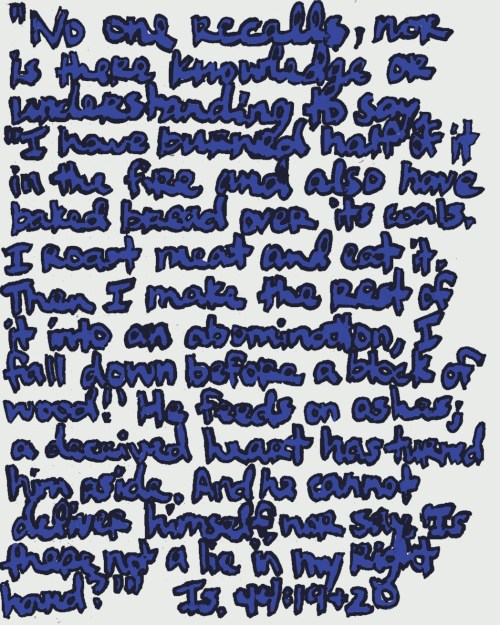 "No one recalls, nor
is there knowledge or
understanding to say,
"I have burned half of it
in the fire and also have
baked bread over its coals.
I roast meat and eat it.
Then I make the rest of
it into an abomination, I
fall down before a block of
wood!" He feeds on ashes;
a deceived heart has turned
him aside. And he cannot
deliver himself, nor say, "Is
there not a lie in my right
hand?'" Is. 44:19+20